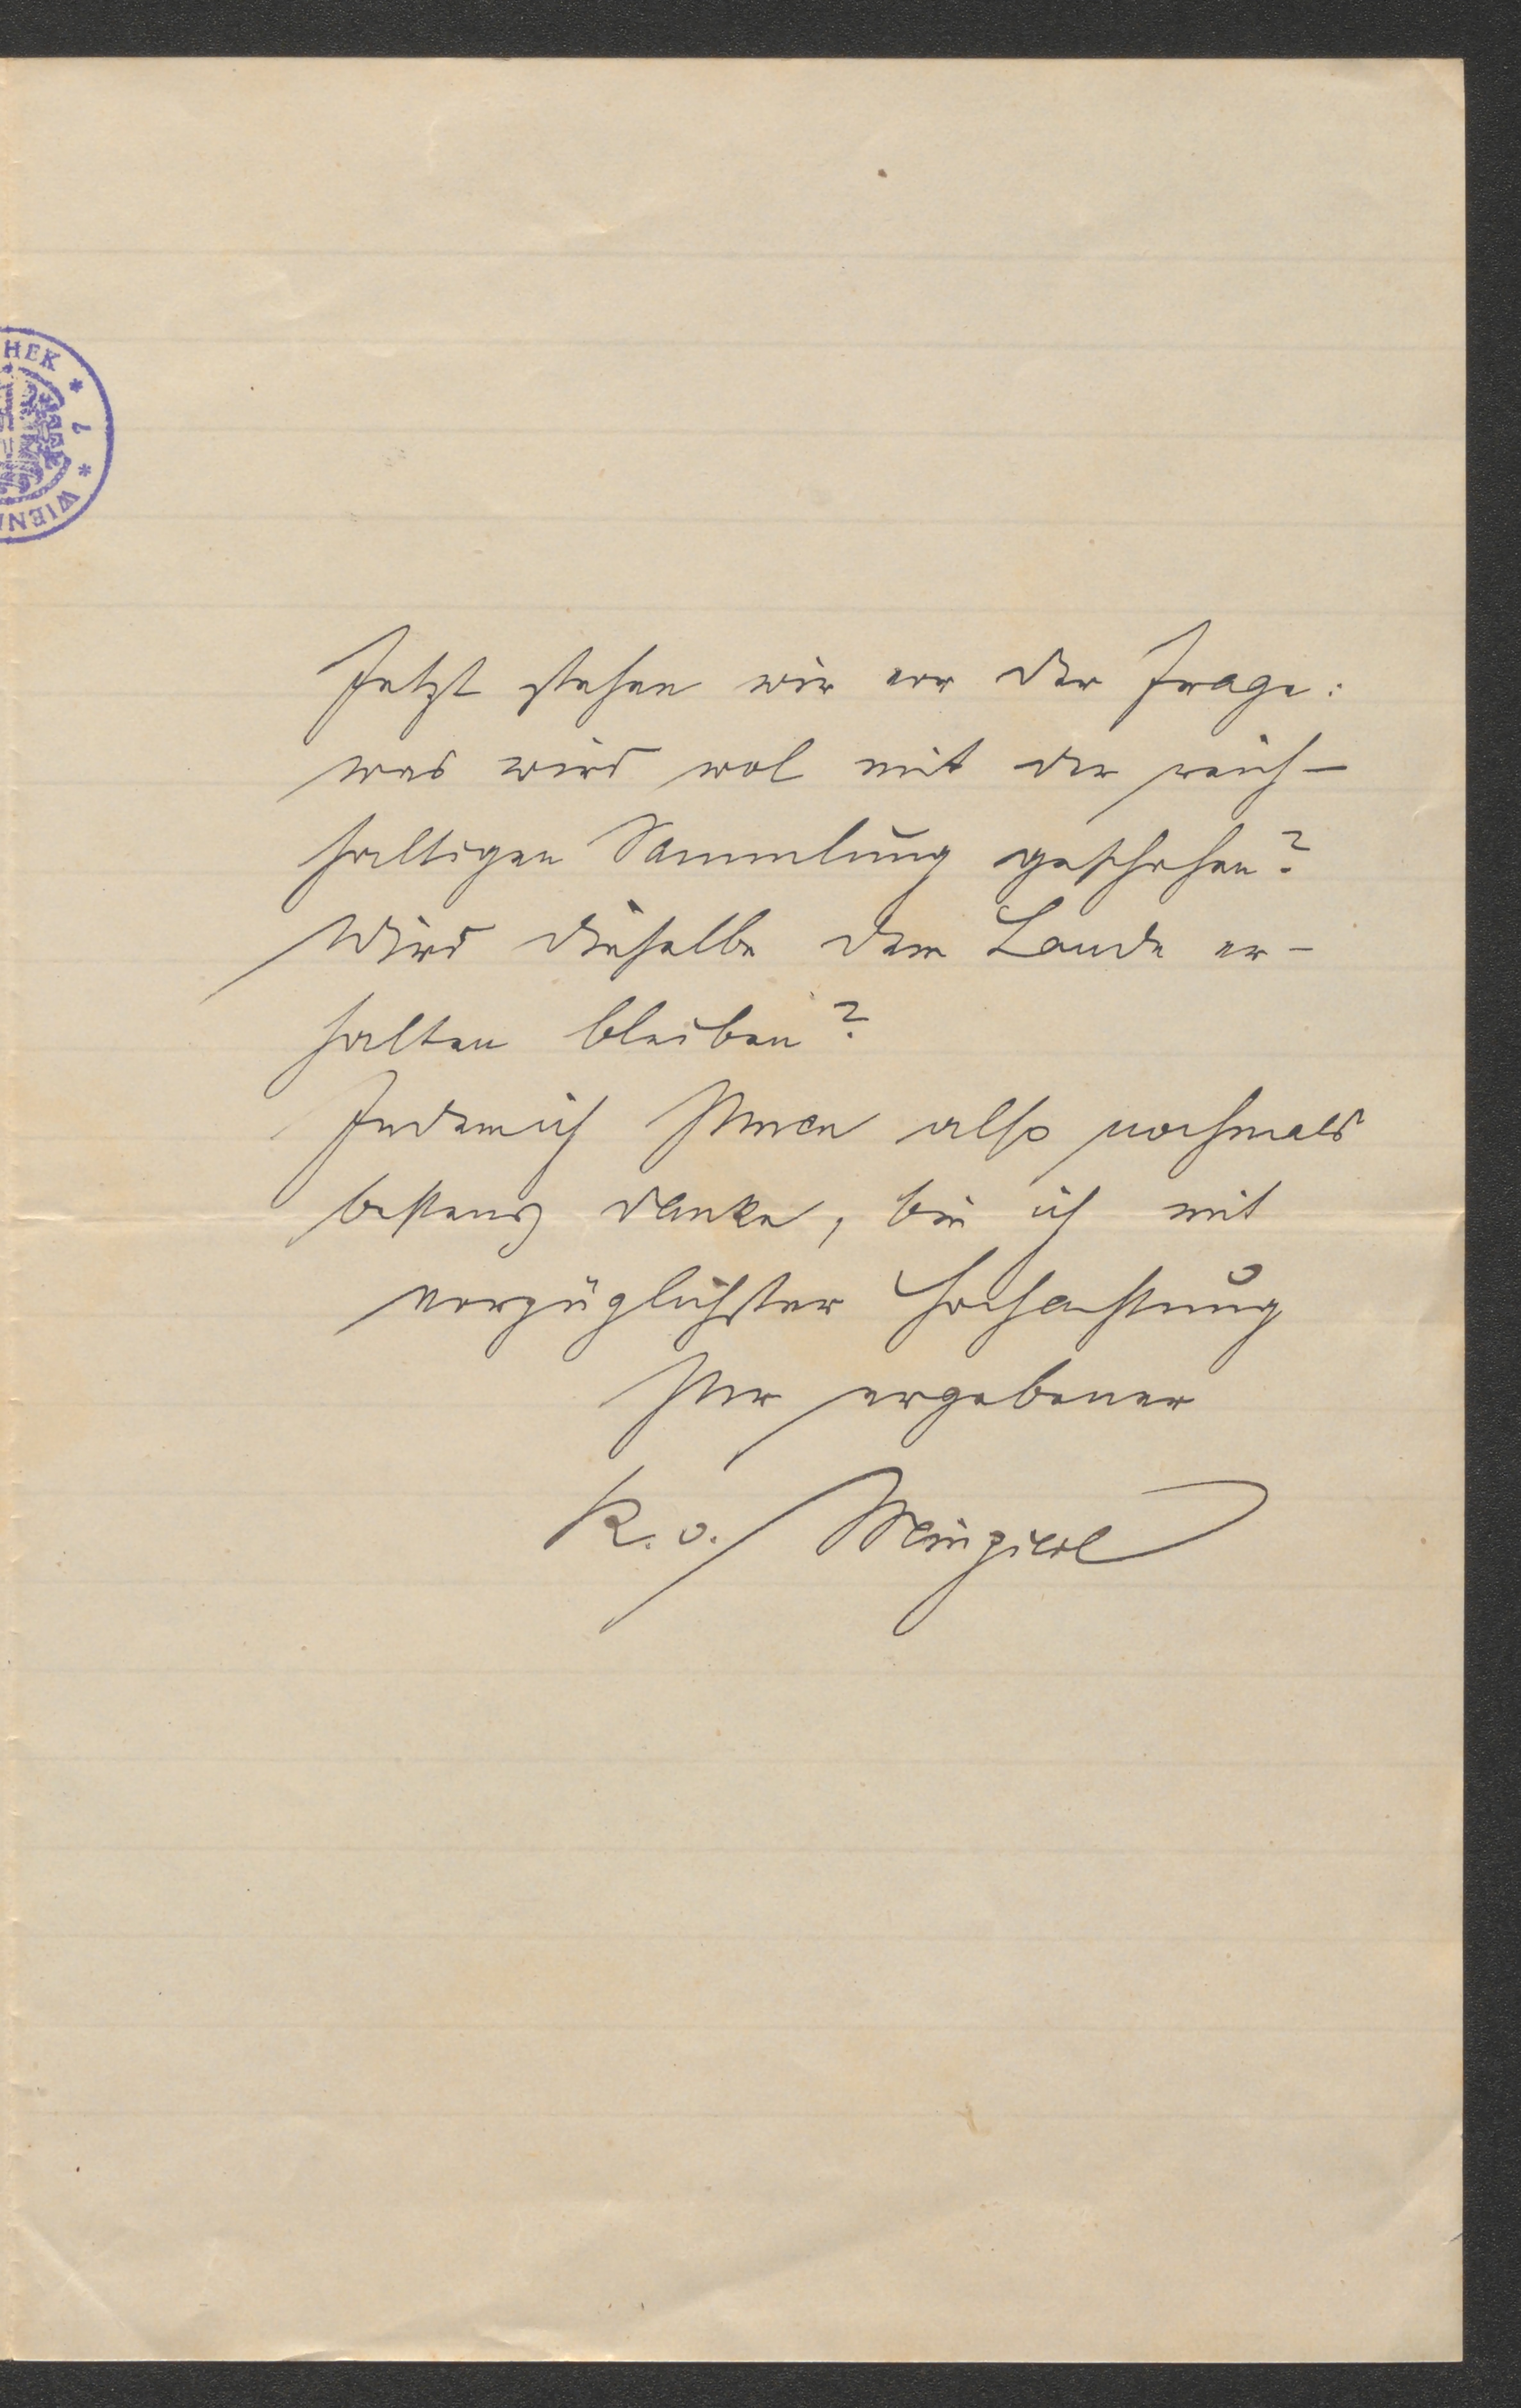 HEK * 7 * WIEN
Jetzt stehen wir vor der Frage:
was wird wol mit der reich-
haltigen Sammlung geschehen?
Wird dieselbe dem Lande er-
halten bleiben?
Indem ich Ihnen also nochmals
bestens danke, bin ich mit
vorzüglichster Hochachtung
Ihr ergebener
R. v. Weinzierl